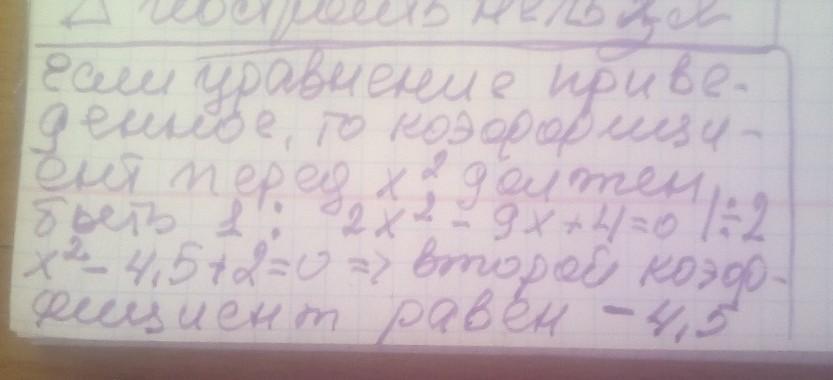 Δ построить нельзя
если уравнение приве-
денное, то коэффици-
ент перед x² должен
быть 1: 2x² - 9x + 4 = 0 | ÷2
x² - 4,5 + 2 = 0 => второй коэф-
фициент равен - 4,5